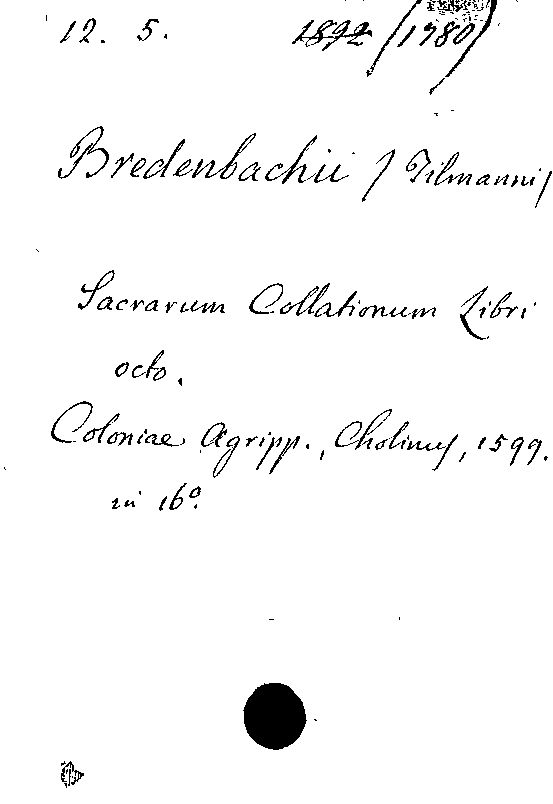 12. 5. 1892 (1780)
Bredenbachii / Tilmanni /
Sacrarum Collationum Libri
octo.
Coloniae Agripp., Cholinus, 1599.
in 16º.